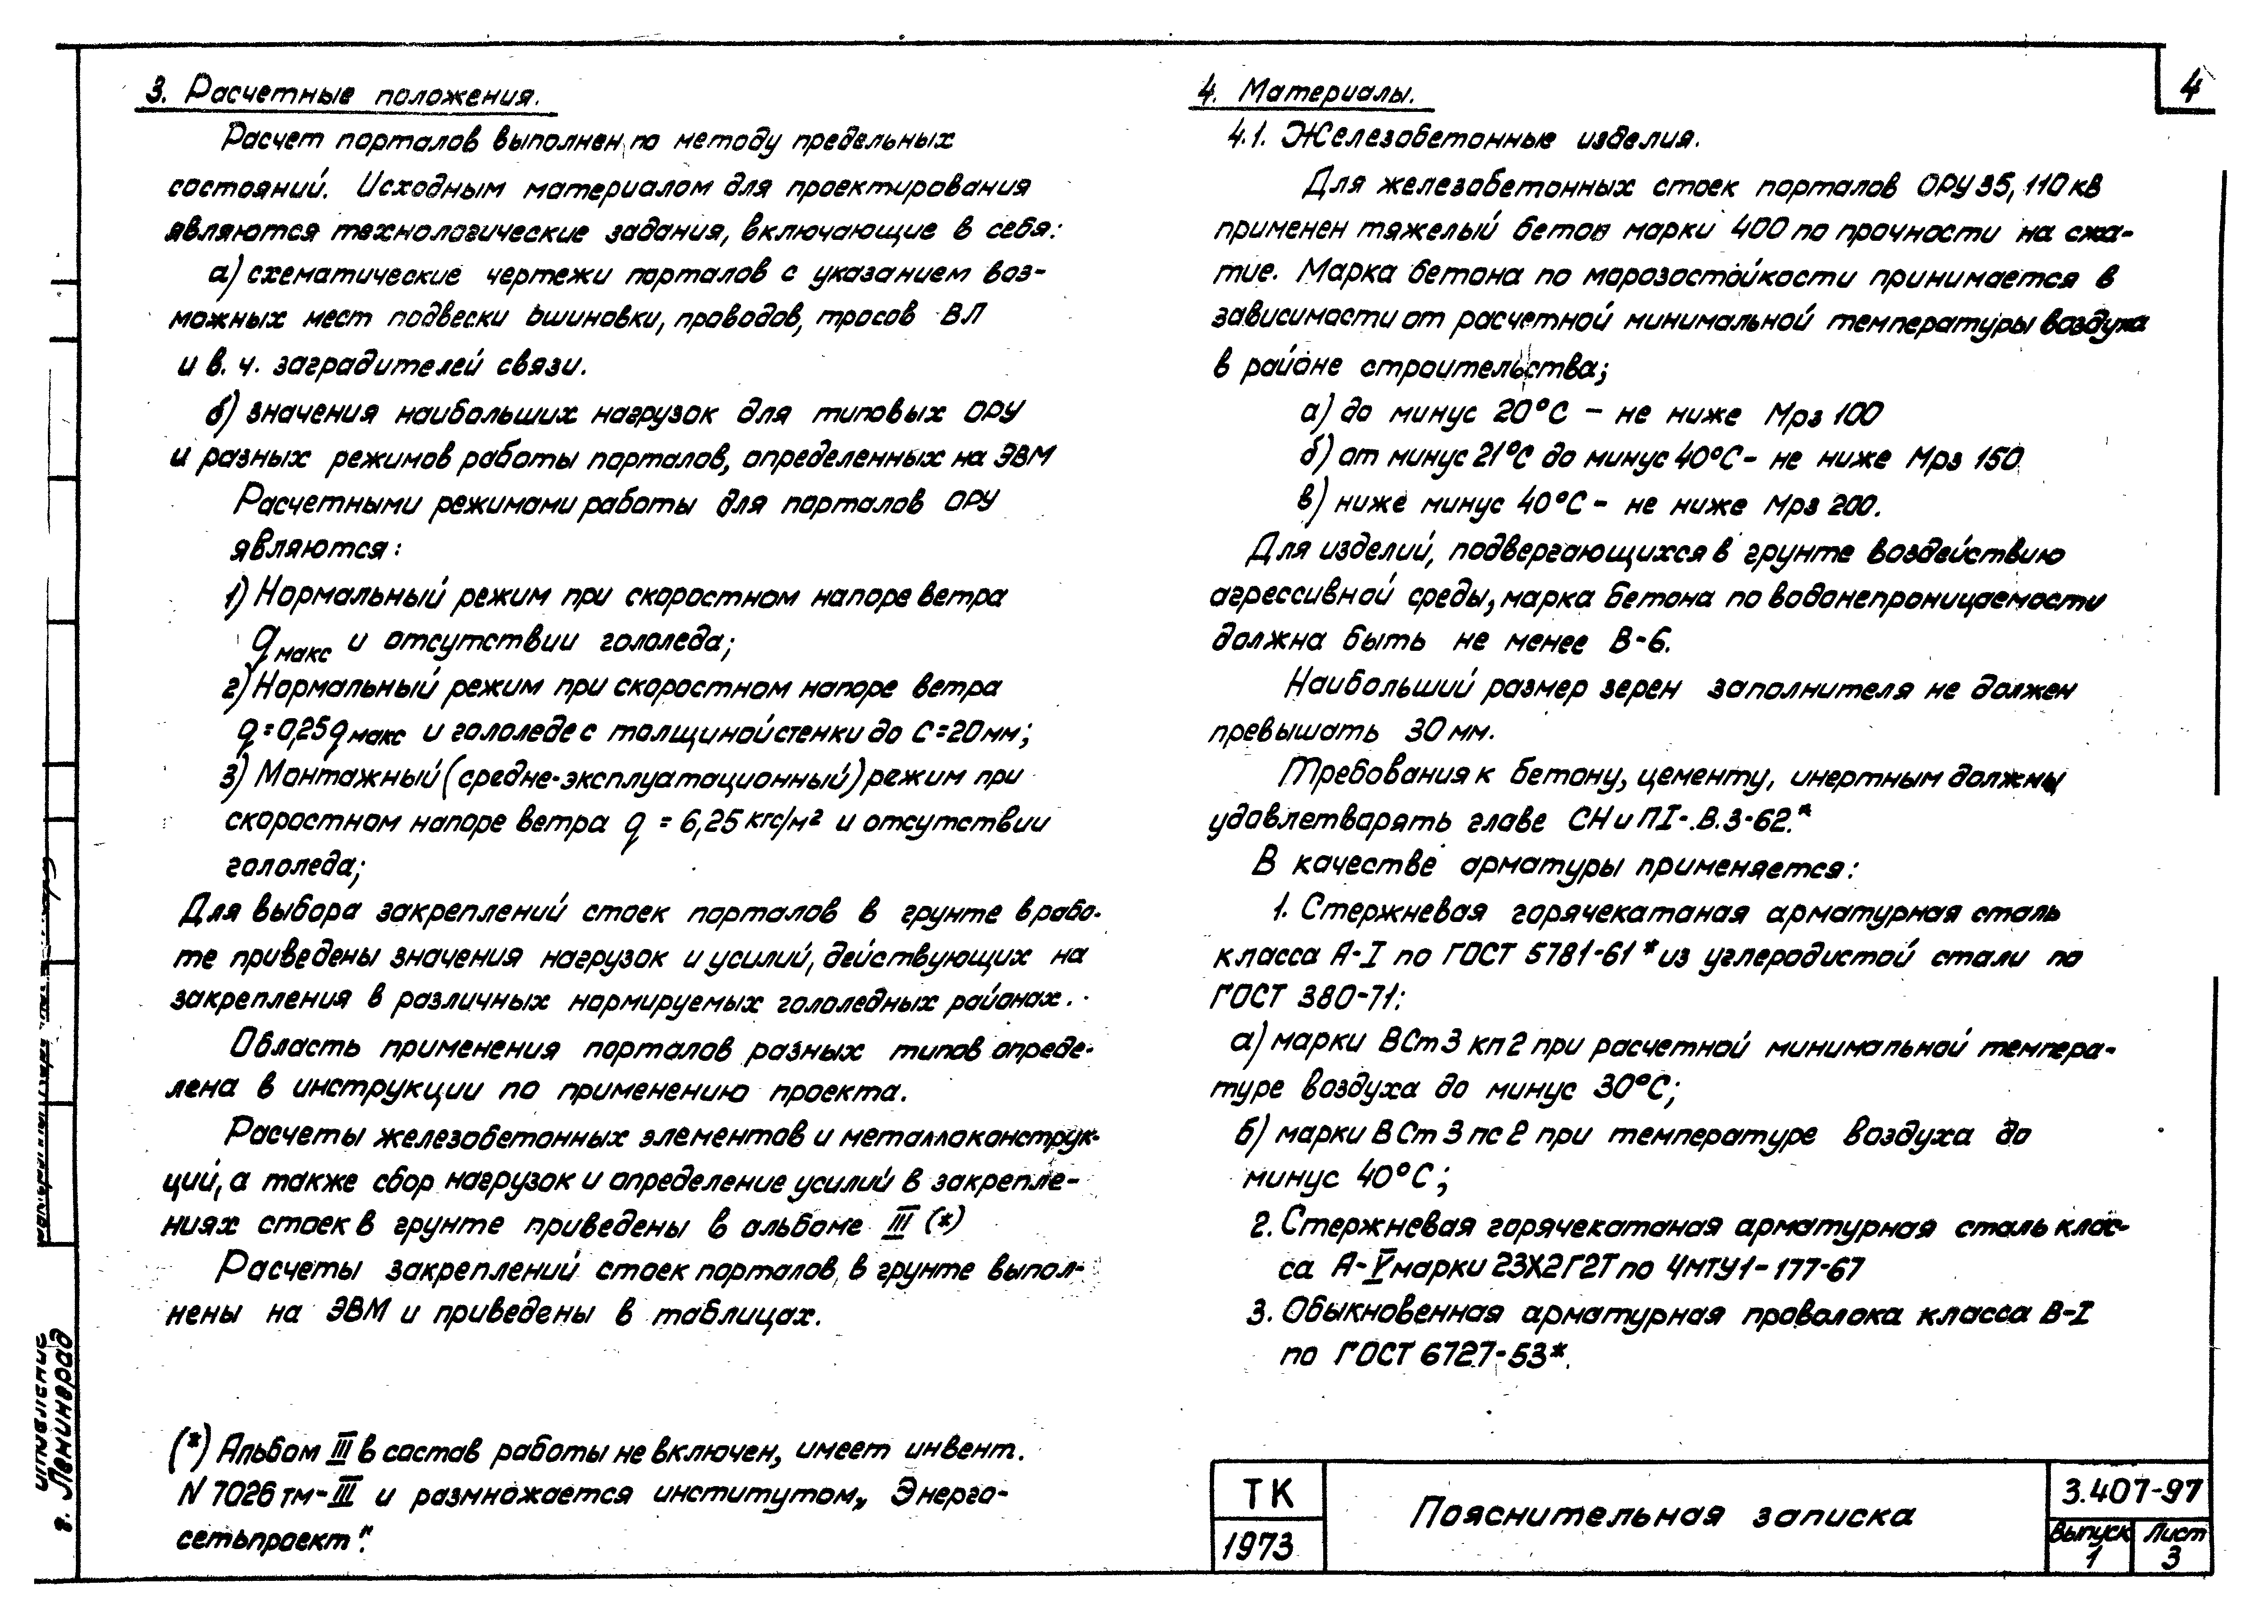 3. Расчетные положения.
Расчет порталов выполнен по методу предельных
состояний. Исходным материалом для проектирования
являются технологические задания, включающие в себя:
а) схематические чертежи порталов с указанием воз-
можных мест подвески ошиновки, проводов, тросов ВЛ
и в. ч. заградителей связи.
б) значения наибольших нагрузок для типовых ОРУ
и разных режимов работы порталов, определенных на ЭВМ
Расчетными режимами работы для порталов ОРУ
являются:
1) Нормальный режим при скоростном напоре ветра
qмакс и отсутствии гололеда;
2) Нормальный режим при скоростном напоре ветра
q = 0,25 qмакс и гололеде с толщиной стенки до С=20 мм;
3) Монтажный (средне-эксплуатационный) режим при
скоростном напоре ветра q = 6,25 кгс/м² и отсутствии
гололеда;
Для выбора закреплений стоек порталов в грунте в рабо-
те приведены значения нагрузок и усилий, действующих на
закрепления в различных нормируемых гололедных районах.
Область применения порталов разных типов опреде-
лена в инструкции по применению проекта.
Расчеты железобетонных элементов и металлоконструк-
ций, а также сбор нагрузок и определение усилий в закрепле-
ниях стоек в грунте приведены в альбоме III (*)
Расчеты закреплений стоек порталов в грунте выпол-
нены на ЭВМ и приведены в таблицах.
(*) Альбом III в состав работы не включен, имеет инвент.
N 7026 тм-III и размножается институтом „Энерго-
сетьпроект".
4
4. Материалы.
4.1. Железобетонные изделия.
Для железобетонных стоек порталов ОРУ 35, 110 кв
применен тяжелый бетон марки 400 по прочности на сжа-
тие. Марка бетона по морозостойкости принимается в
зависимости от расчетной минимальной температуры воздуха
в районе строительства;
а) до минус 20°С - не ниже Мрз 100
б) от минус 21°С до минус 40°С - не ниже Мрз 150
в) ниже минус 40°С - не ниже Мрз 200.
Для изделий, подвергающихся в грунте воздействию
агрессивной среды, марка бетона по водонепроницаемости
должна быть не менее В-6.
Наибольший размер зерен заполнителя не должен
превышать 30 мм.
Требования к бетону, цементу, инертным должны
удовлетворять главе СНиП I-.В.3-62.*
В качестве арматуры применяется:
1. Стержневая горячекатаная арматурная сталь
класса А-I по ГОСТ 5781-61* из углеродистой стали по
ГОСТ 380-71:
а) марки ВСт3кп2 при расчетной минимальной темпера-
туре воздуха до минус 30°С;
б) марки ВСт3пс2 при температуре воздуха до
минус 40°С;
2. Стержневая горячекатаная арматурная сталь клас-
са А-V марки 23Х2Г2Т по ЧМТУ1-177-67
3. Обыкновенная арматурная проволока класса В-I
по ГОСТ 6727-53*.
ТК
1973
Пояснительная записка
3.407-97
Выпуск
1
Лист
3
г. Ленинград